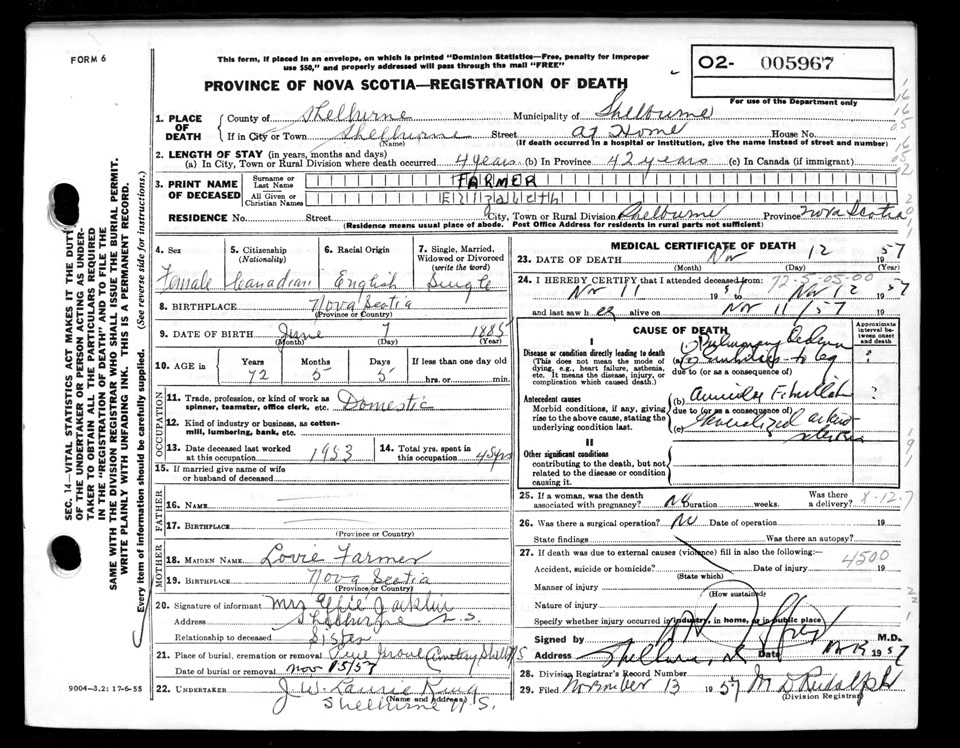 FORM 6
This form, if placed in an envelope, on which is printed "Dominion Statistics—Free, penalty for improper
use $50," and properly addressed will pass through the mail "FREE"
O2- 005967
PROVINCE OF NOVA SCOTIA—REGISTRATION OF DEATH
For use of the Department only
1. PLACE OF DEATH
County of Shelburne Municipality of Shelburne
If in City or Town Shelburne Street at Home House No.
(Name) (If death occurred in a hospital or institution, give the name instead of street and number)
2. LENGTH OF STAY (in years, months and days)
(a) In City, Town or Rural Division where death occurred 4 years (b) In Province 42 years (c) In Canada (if immigrant)
3. PRINT NAME OF DECEASED
Surname or Last Name FARMER
All Given or Christian Names Elizabeth
RESIDENCE No. Street City, Town or Rural Division Shelburne Province Nova Scotia
(Residence means usual place of abode. Post Office Address for residents in rural parts not sufficient)
4. Sex 5. Citizenship (Nationality) 6. Racial Origin 7. Single, Married, Widowed or Divorced (write the word)
Female Canadian English Single
8. BIRTHPLACE Nova Scotia
(Province or Country)
9. DATE OF BIRTH June 7 1885
(Month) (Day) (Year)
10. AGE in Years Months Days If less than one day old
72 5 5 hrs. or min.
OCCUPATION
11. Trade, profession, or kind of work as spinner, teamster, office clerk, etc. Domestic
12. Kind of industry or business, as cotton-mill, lumbering, bank, etc.
13. Date deceased last worked at this occupation 1953
14. Total yrs. spent in this occupation 45 yrs
15. If married give name of wife or husband of deceased
FATHER
16. NAME
17. BIRTHPLACE
(Province or Country)
MOTHER
18. MAIDEN NAME Lovie Farmer
19. BIRTHPLACE Nova Scotia
(Province or Country)
20. Signature of informant Mrs Effie Jacklin
Address Shelburne N.S.
Relationship to deceased Sister
21. Place of burial, cremation or removal Pine Grove Cemetery Shelb N S
Date of burial or removal Nov 15/57
22. UNDERTAKER J. W. Laurie King
(Name and Address)
Shelburne N.S.
9004—3.2: 17-6-55
MEDICAL CERTIFICATE OF DEATH
23. DATE OF DEATH Nov 12 57
(Month) (Day) (Year)
24. I HEREBY CERTIFY that I attended deceased from: 72-5-05-00
Nov 11 1957 to Nov 12 1957
and last saw her alive on Nov 11/57
CAUSE OF DEATH
Approximate interval between onset and death
I
Disease or condition directly leading to death
(This does not mean the mode of dying, e.g., heart failure, asthenia, etc. It means the disease, injury, or complication which caused death.)
(1) Pulmonary Oedema
(a) embolus to leg ?
due to (or as a consequence of)
Antecedent causes
Morbid conditions, if any, giving rise to the above cause, stating the underlying condition last.
(b) Auricular Fibrillation ?
due to (or as a consequence of)
(c) Generalized arterio sclerosis
II
Other significant conditions
contributing to the death, but not related to the disease or condition causing it.
25. If a woman, was the death associated with pregnancy? No Duration weeks. Was there a delivery?
X-12.7
26. Was there a surgical operation? No Date of operation 19
State findings Was there an autopsy?
27. If death was due to external causes (violence) fill in also the following:
4500
Accident, suicide or homicide? Date of injury 19
(State which)
Manner of injury
(How sustained)
Nature of injury
Specify whether injury occurred in industry, in home, or in public place
Signed by M.D.
Address Shelburne, N.S Date 1957
28. Division Registrar's Record Number
29. Filed November 13 1957 M D Rudolph
(Division Registrar)
SEC. 14—VITAL STATISTICS ACT MAKES IT THE DUTY
OF THE UNDERTAKER OR PERSON ACTING AS UNDER-
TAKER TO OBTAIN ALL THE PARTICULARS REQUIRED
IN THE "REGISTRATION OF DEATH" AND TO FILE THE
SAME WITH THE DIVISION REGISTRAR WHO SHALL ISSUE THE BURIAL PERMIT.
WRITE PLAINLY WITH UNFADING INK. THIS IS A PERMANENT RECORD.
Every item of information should be carefully supplied. (See reverse side for instructions.)